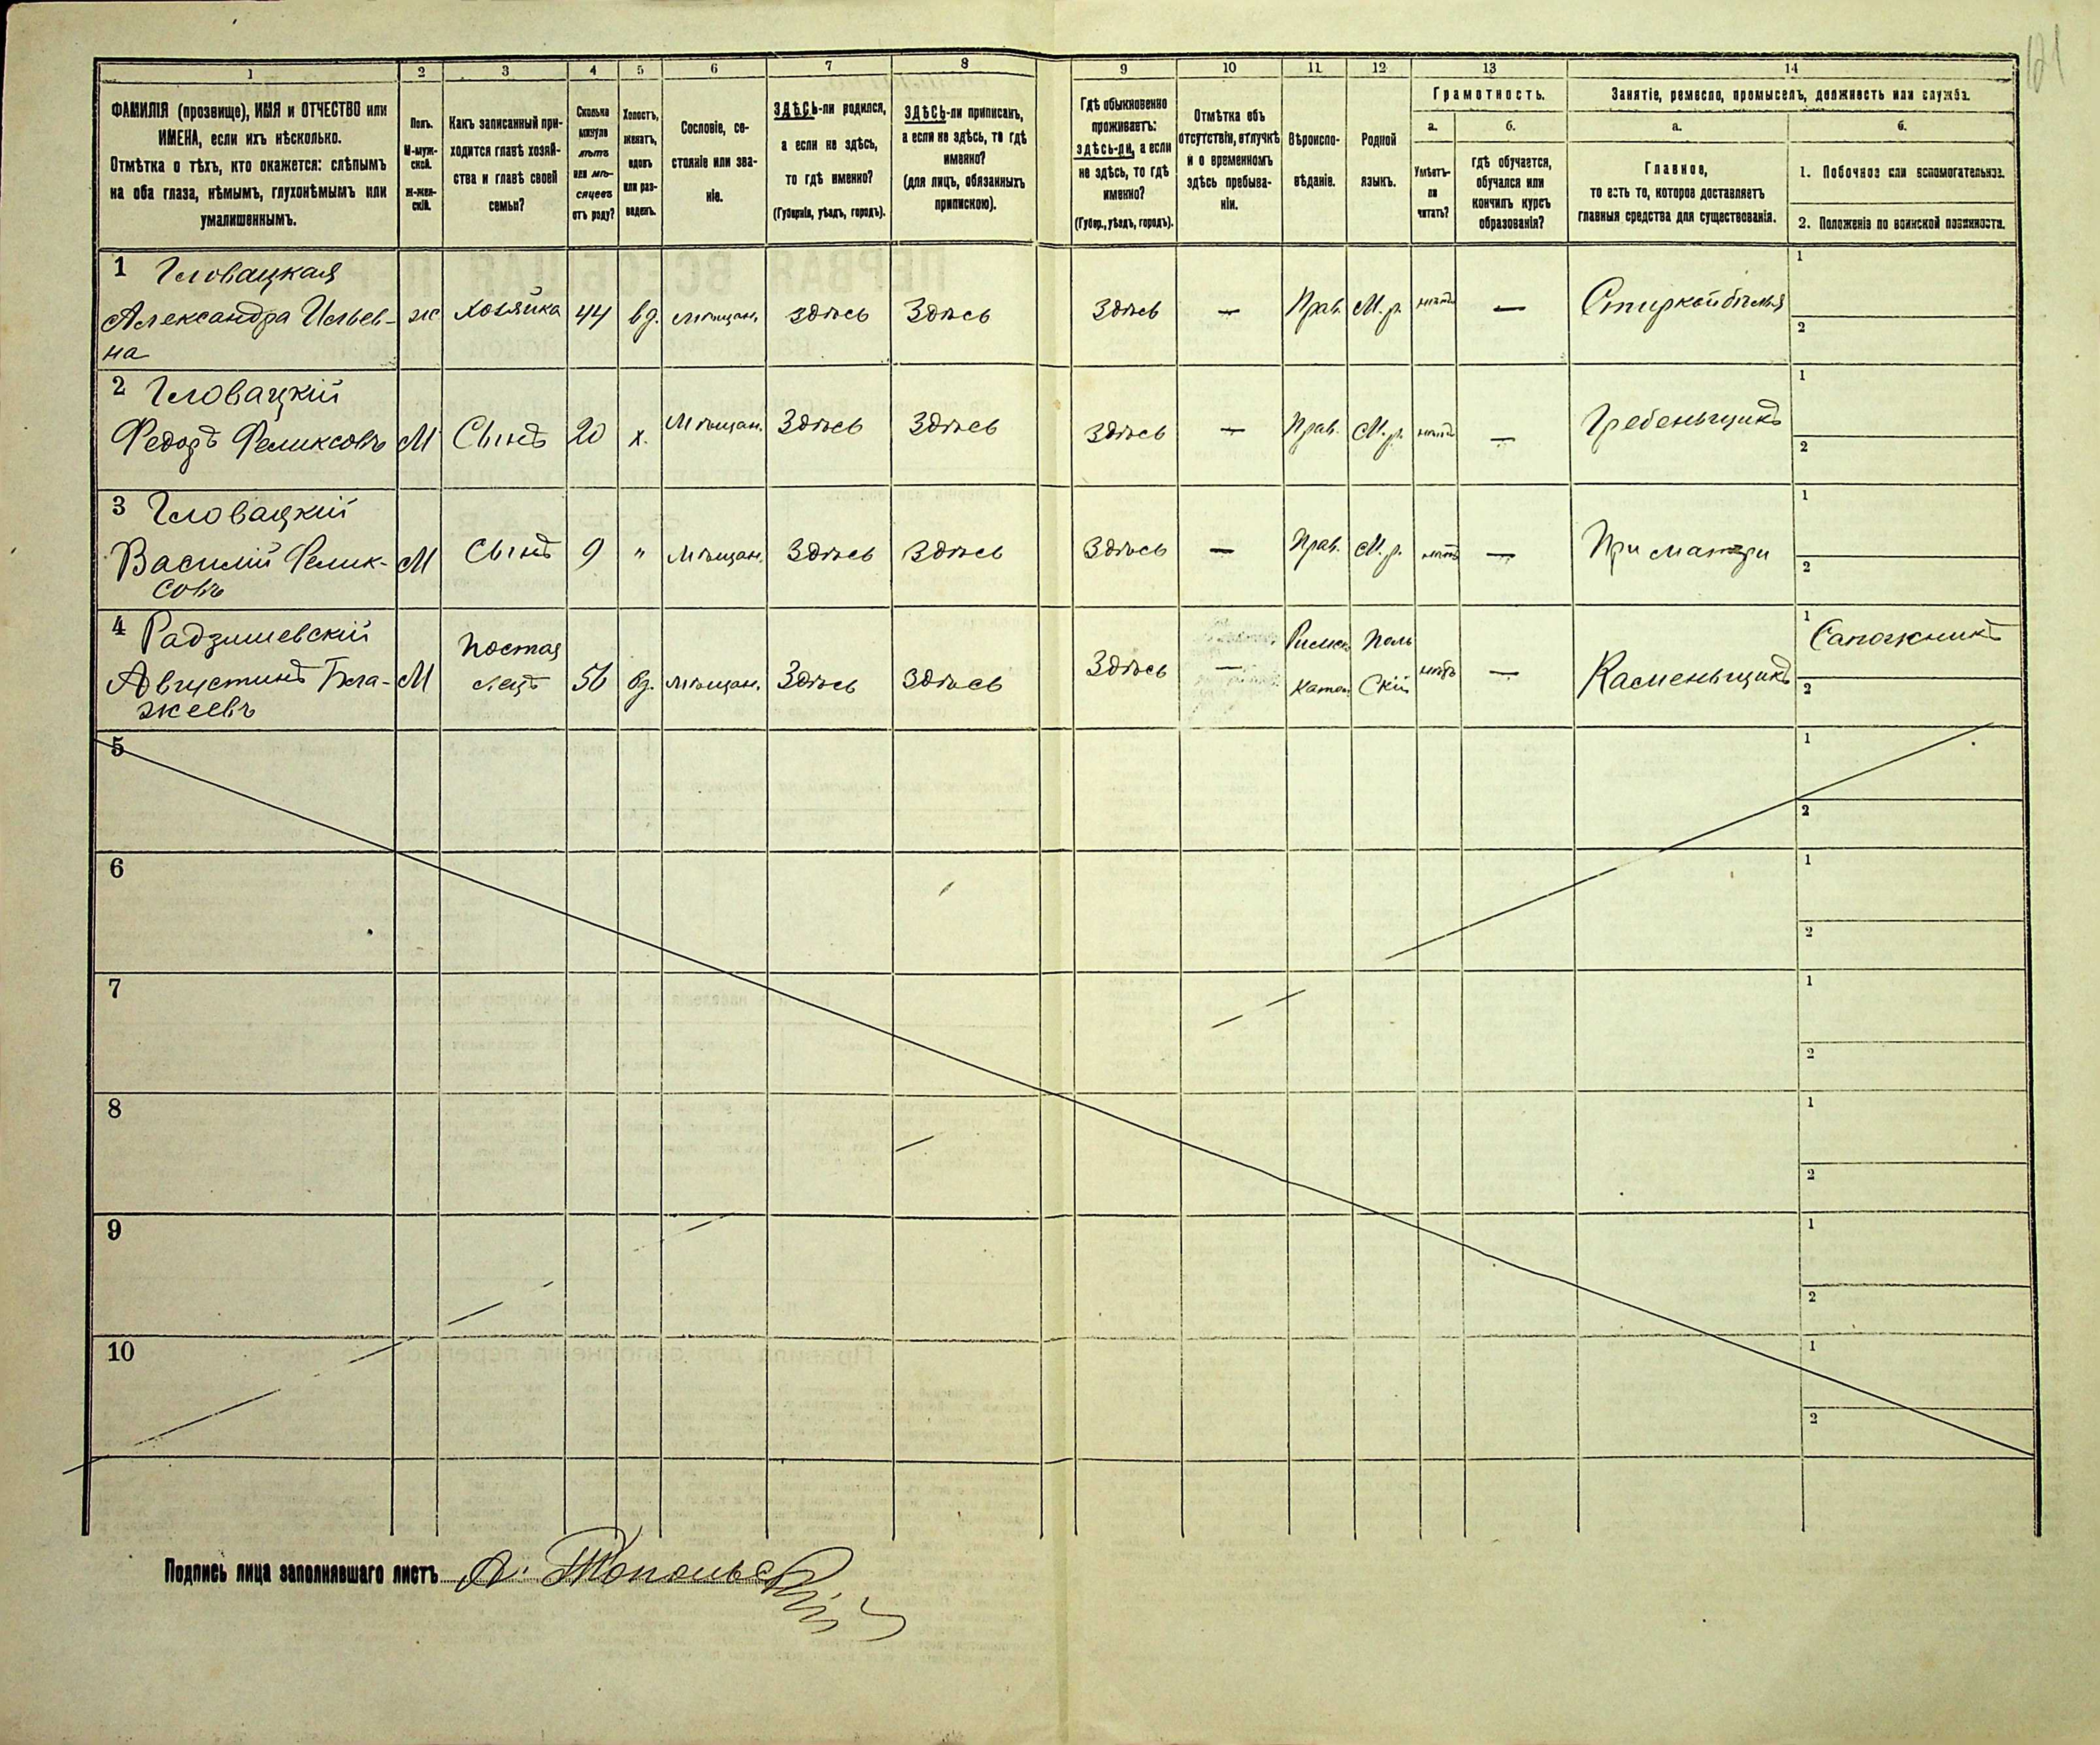 121
1 2 3 4 5 6 7 8 9 10 11 12 13 14
ФАМИЛІЯ (прозвище), ИМЯ и ОТЧЕСТВО или
ИМЕНА, если ихъ нѣсколько.
Отмѣтка о тѣхъ, кто окажется: слѣпымъ
на оба глаза, нѣмымъ, глухонѣмымъ или
умалишеннымъ.
Полъ.
М-муж-
ской.
Ж-жен-
скій.
Какъ записанный при-
ходится главѣ хозяй-
ства и главѣ своей
семьи?
Сколько
минуло
лѣтъ
или мѣ-
сяцевъ
отъ роду?
Холостъ,
женатъ,
вдовъ
или раз-
веденъ.
Сословіе, со-
стояніе или зва-
ніе.
ЗДѢСЬ-ли родился,
а если не здѣсь,
то гдѣ именно?
(Губернія, уѣздъ, городъ).
ЗДѢСЬ-ли приписанъ,
а если не здѣсь, то гдѣ
именно?
(для лицъ, обязанныхъ
припискою).
Гдѣ обыкновенно
проживаетъ:
здѣсь-ли, а если
не здѣсь, то гдѣ
именно?
(Губер., уѣздъ, городъ).
Отмѣтка объ
отсутствіи, отлучкѣ
и о временномъ
здѣсь пребыва-
ніи.
Вѣроиспо-
вѣданіе.
Родной
языкъ.
Грамотность.
а.
Умѣетъ-
ли
читать?
б.
гдѣ обучается,
обучался или
кончилъ курсъ
образованія?
Занятіе, ремесло, промыселъ, должность или служба.
а.
Главное,
то есть то, которое доставляетъ
главныя средства для существованія.
б.
1. Побочное или вспомогательное.
2. Положеніе по воинской повинности.
1 Гловацкая
Александра Ильев-
на
ж Хозяйка 44 вд. мѣщан. здѣсь Здѣсь Здѣсь — Прав. М. р. нѣтъ — Стиркой бѣлья 1
2
2 Гловацкій
Федоръ Феликсовъ
М Сынъ 20 х. Мѣщан. Здѣсь Здѣсь Здѣсь — Прав. М. р. нѣтъ — Гребеньщикъ 1
2
3 Гловацкій
Василій Фелик-
совъ
М Сынъ 9 " Мѣщан. Здѣсь Здѣсь Здѣсь — Прав. М. р. нѣтъ — При матери 1
2
4 Радзишевскій
Августинъ Бла-
жеевъ
М Постоя
лецъ 56 вд. мѣщан. Здѣсь Здѣсь Здѣсь — Римск.
Катол. Поль
скій нѣтъ — Каменьщикъ 1 Сапожникъ
2
5 1
2
6 1
2
7 1
2
8 1
2
9 1
2
10 1
2
Подпись лица заполнявшаго листъ А. Топольскій